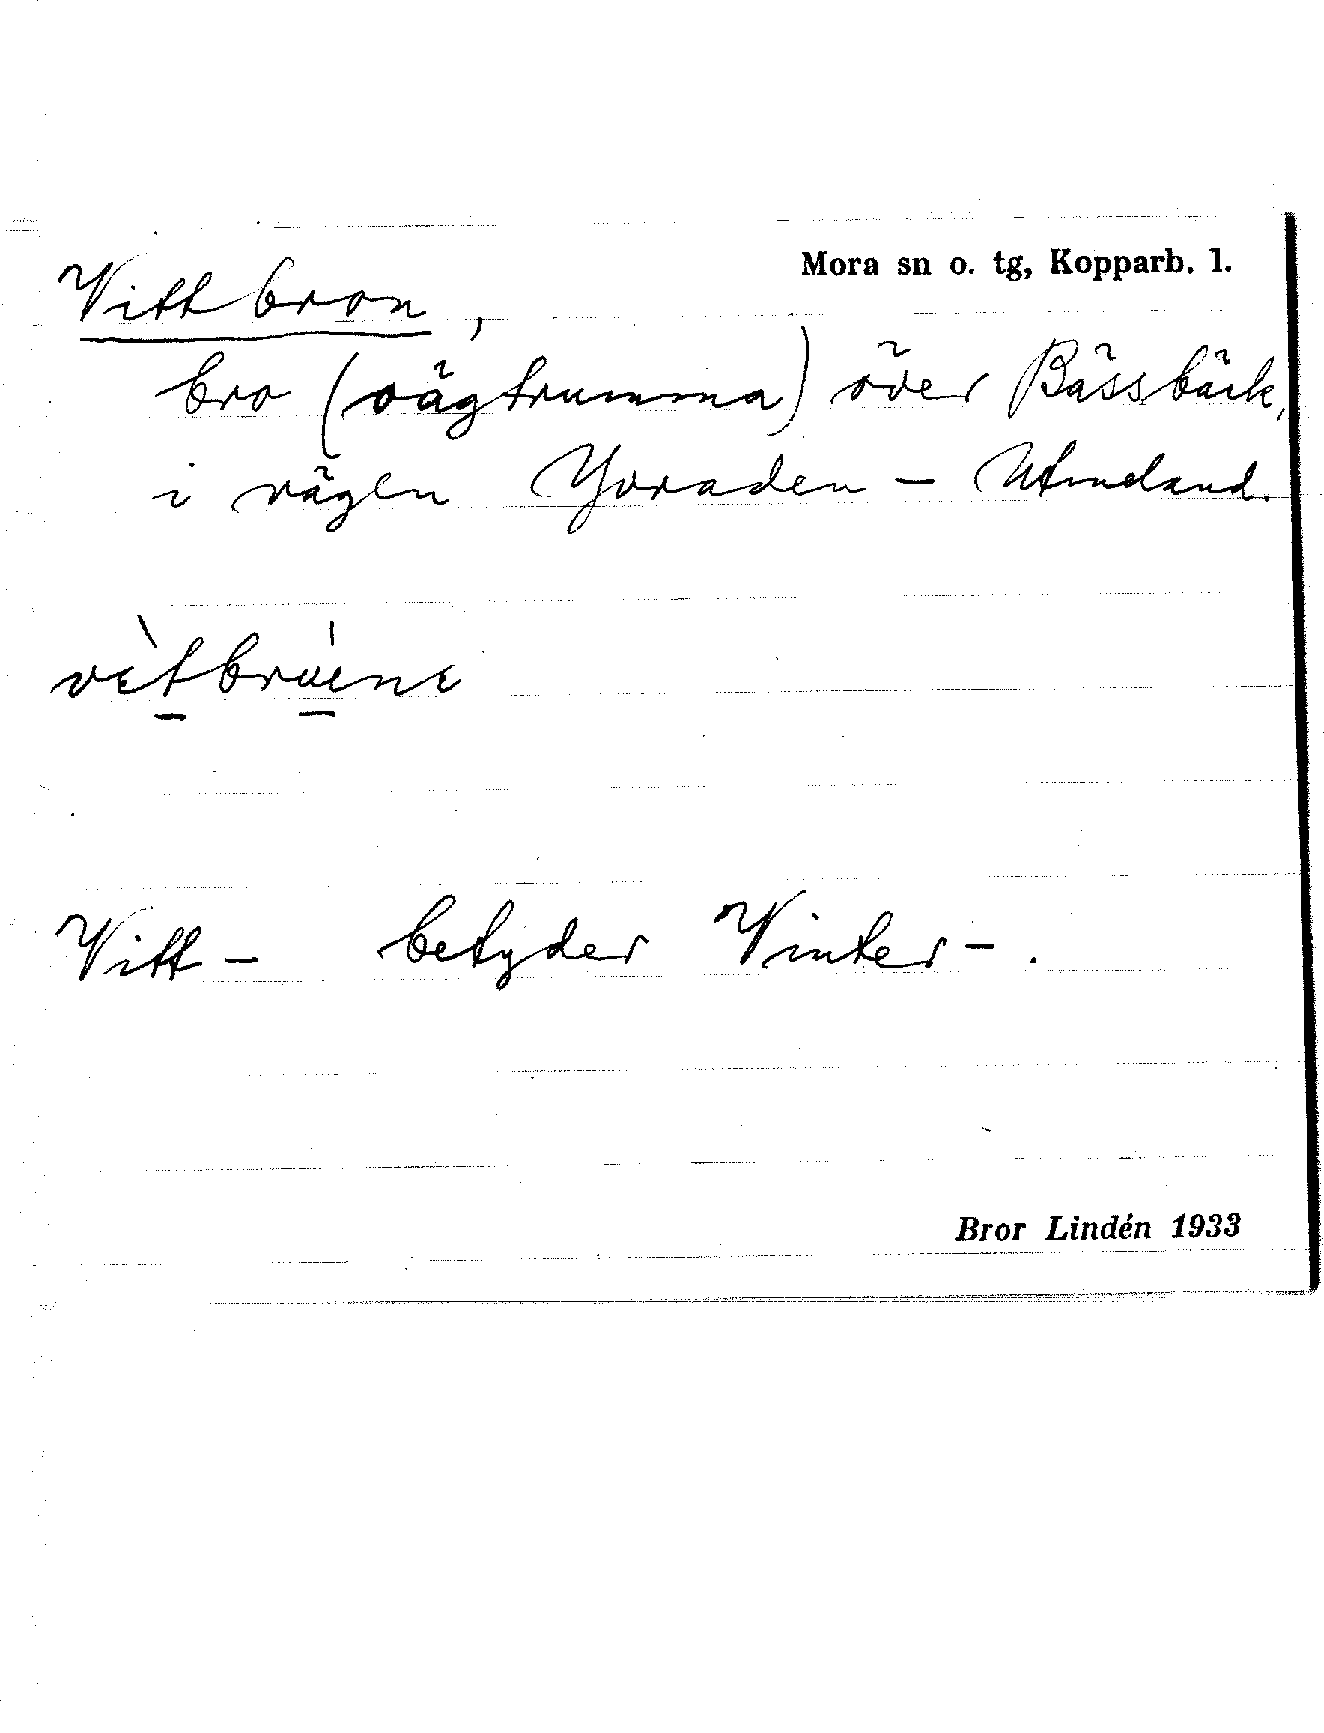 Mora sn o. tg, Kopparb. l.
Vittbron,
bro (vägtrumma) över Bässbäck,
i vägen Yvraden - Utmeland.
vètbrúene
Vitt- betyder Vinter-.
Bror Lindén 1933